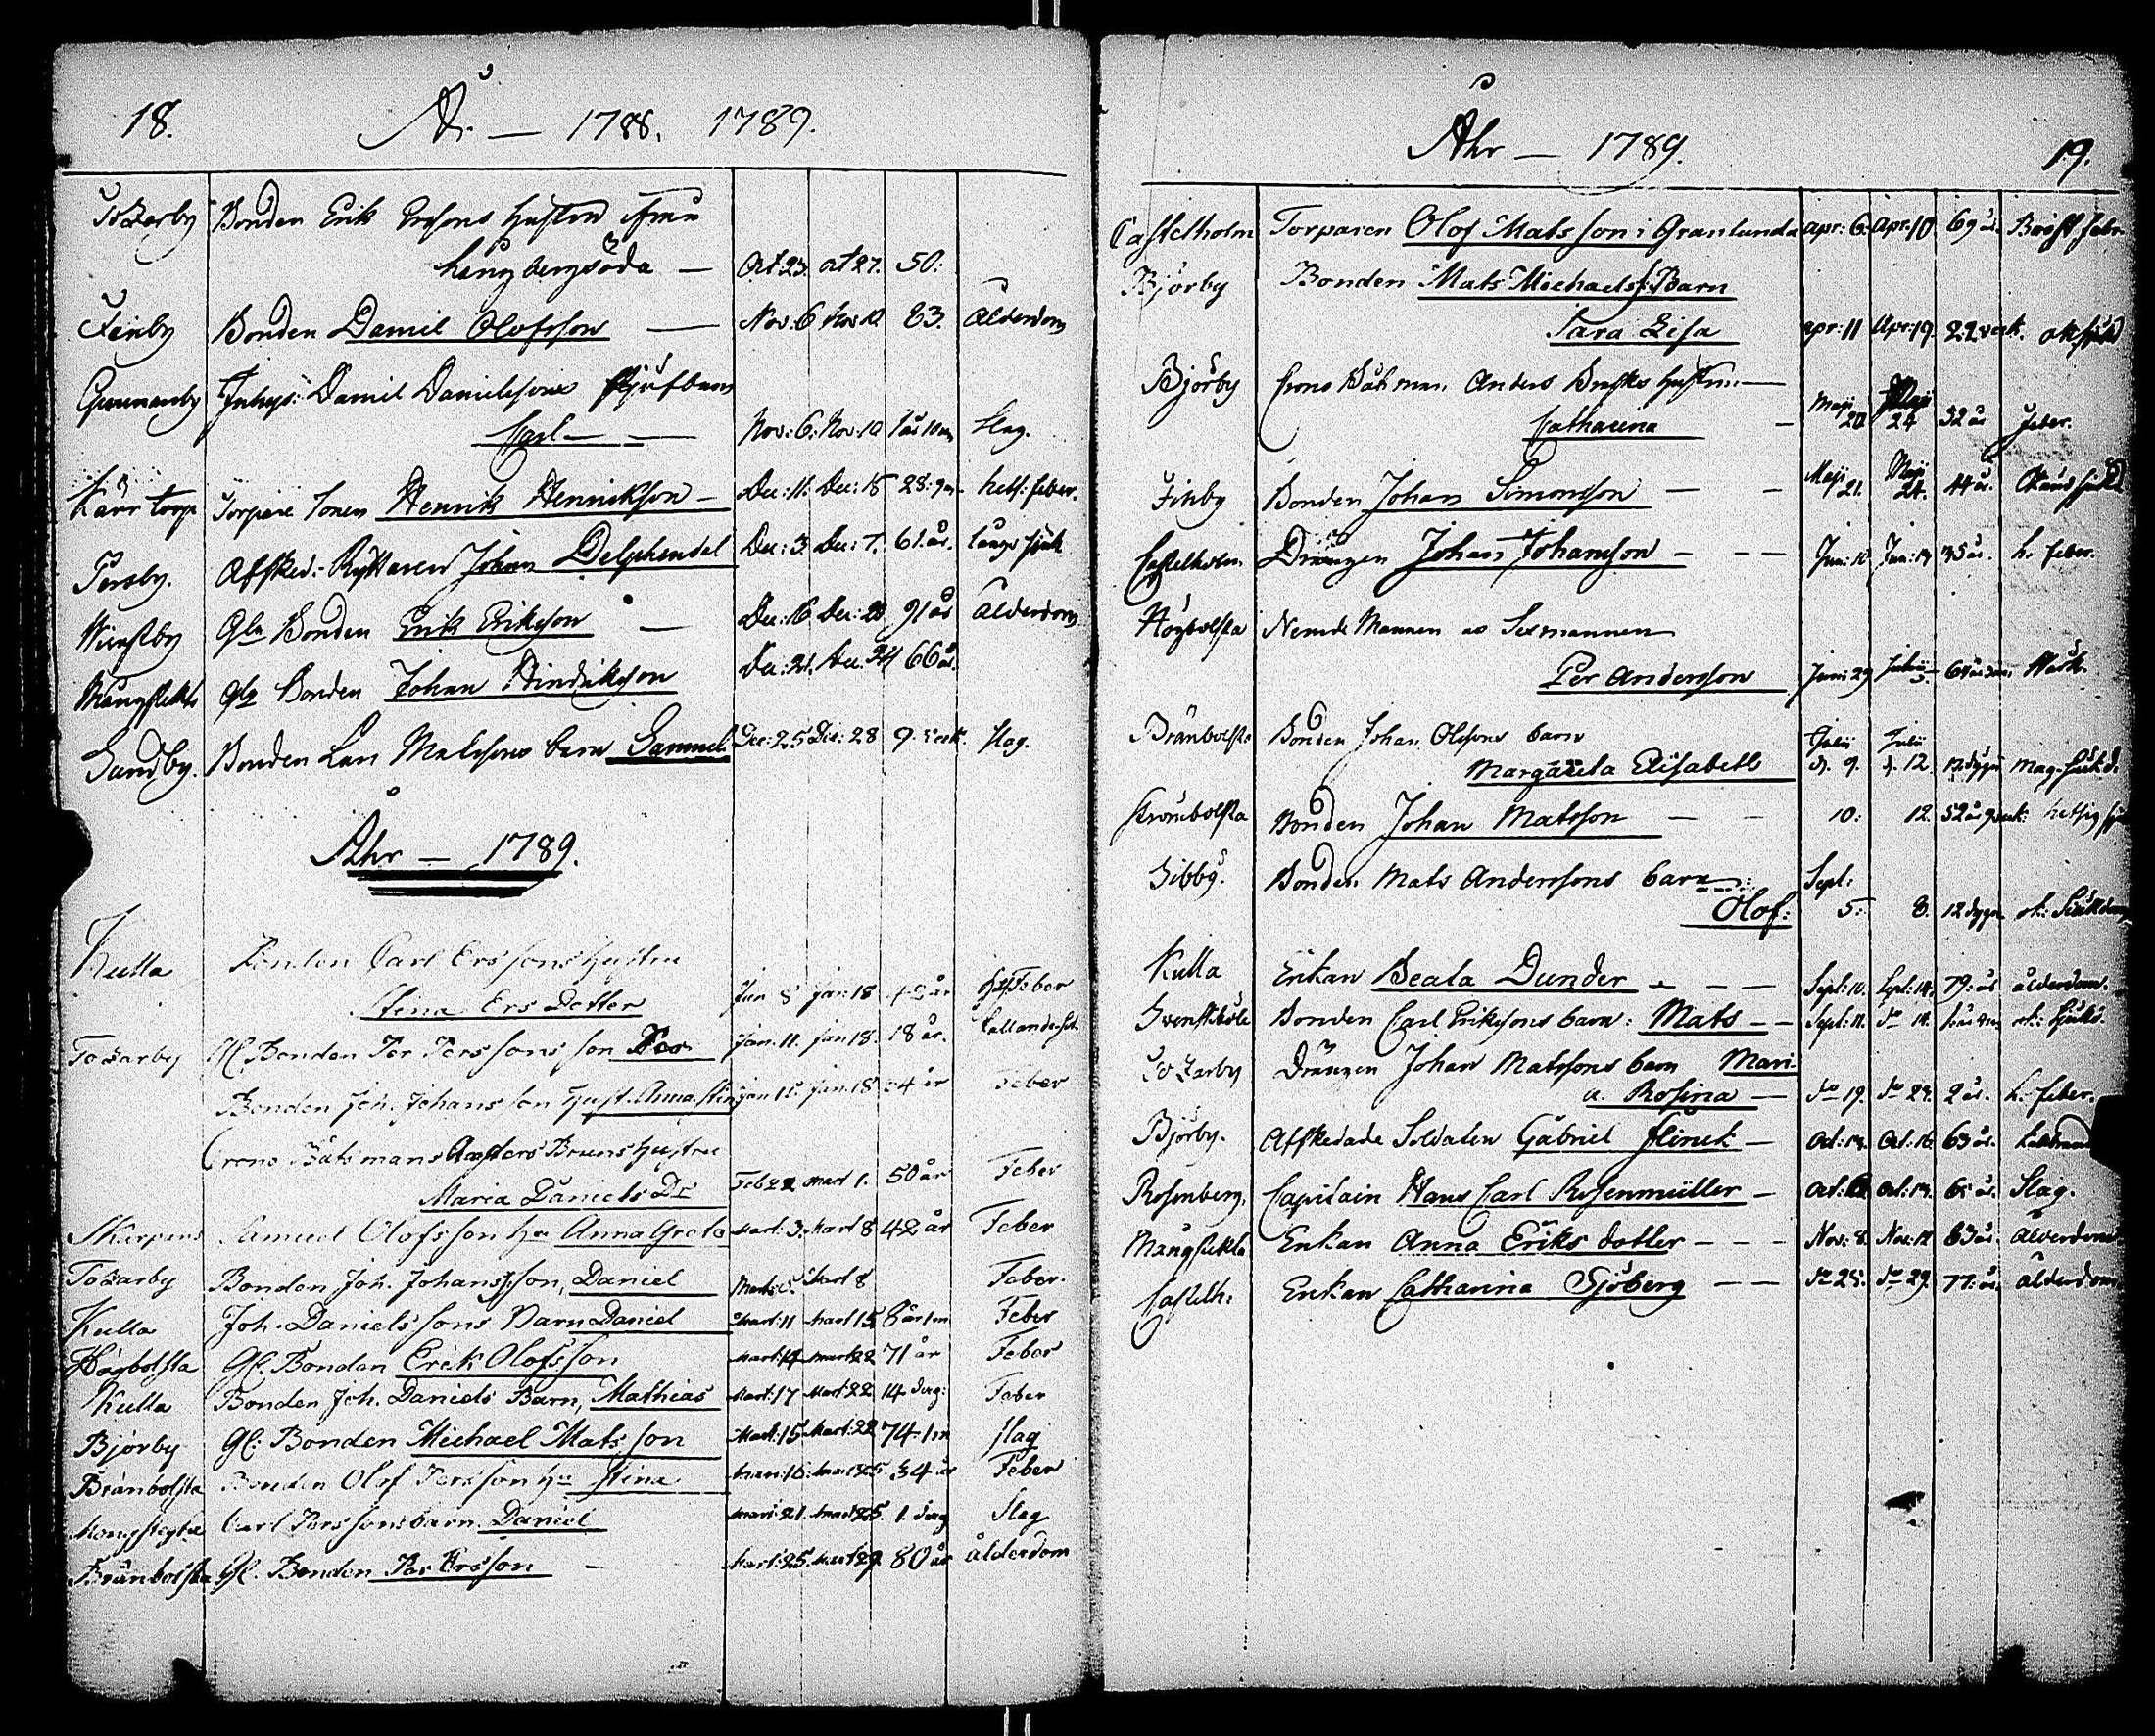 18. År. — 1788. 1789.
Tosarby Bonden Erik Erssons hustru
Långbergsöda — Oct 23. oct 27. 50:
Finby Bonden Daniel Olofsson — Nov: 6 Nov: 10. 83. Ålderdom
Gunnarby Inhys: Daniel Danielssons
Carl — — Nov: 6. Nov: 10 Slag.
Kårr torp Torpare sonen Henrik Henrikson — Dec: 11. Dec: 15 28: hets: feber.
Persby. Afsked: Ryttaren Johan Delphendal Dec: 3. Dec: 7. 61. år.
Gla Bonden Erik Erikson — Dec: 16 Dec: 20 91 år Ålderdom
Mångstekta Gla Bonden Johan Hindrikson Dec: 21. Dec: 24 66 år.
Sundby. Bonden Lars Matssons barn Samuel Dec: 25 Dec: 28 9 veck. slag.
Åhr — 1789.
Kulla Bonden Carl Ers sons hustru
Stina Ers Dotter Jan 8 Jan: 18 42 år Feber
Tosarby Gl. Bonden Per Pers sons son Per Jan. 11. Jan 18. 18 år.
Bonden Joh. Johans son Hust. Anna Stin Jan Jan: 18 år Feber
Crono Båtsmans Bruns hustru
Maria Daniels Dr Feb 22 Mart 1. 50 år Feber
Skarpans Samuel Olofs son hu Anna Greta Mart: 3. Mart 8 42 år Feber
Tosarby Bonden Joh. Johansson, Daniel Mart 8 Feber.
Kulla Joh. Daniels sons Barn Daniel Mart: 11 Mart 15 8 år 1 m Feber
Högbolsta Gl. Bonden Erik Olofs son Mart: 14 Mart 22 71 år Feber
Kulla Bonden Joh. Daniels Barn, Mathias Mart: 17 Mart 22 14 dag: Feber
Björby Gl: Bonden Michael Mats son Mart: 15 Mart: 22 74. 1 m slag
Bränbolsta Bonden Olof Persson hu Stina Mart: 16. Mart 25. 34 år Feber
Mongstegta Carl Perssons barn Daniel Mart: 21. Mart 25. 1. dag Slag
Bränbolsta Gl. Bonden Per Ersson — Mart: 25. Mart 29. 80 år ålderdom
Åhr — 1789. 19.
Castelholm Torparen Olof Mats son i Granlunda apr: 6. Apr: 10. 69 år. Bröst feber
Björby Bonden Mats Michaels: Barn
Sara Lisa apr: 11 Apr: 19. 2: 2 veck.
Björby Crono Båtsman Anders hustru —
Catharina — Maji 20. Maji 24 32 år feber.
Finby Bonden Johan Simonsson — — Maji 21. Maji 24. 44 år.
Castelholm. Drängen Johan Johansson — — — Jun: 10 Jun: 14 35 år. h. feber.
Högbolsta Nemde Mannen
Per Andersson Juni 29 Julii 5.
Bränbolsta Bonden Johan Olssons barn
Margareta Elisabeth Julii d. 9. Julii d. 12. 12 dygn
Strömbolsta Bonden Johan Matsson — — 10: 12. 52 år hetsig
Sibby. Bonden Mats Anderssons barn: Sept:
Olof: 5: 8. 12 dygn
Kulla Enkan Beala Dunder — — — Sept: 10. Sept: 14. 79: år ålderdom.
Svenstböle Bonden Carl Eriksons barn: Mats — — Sept: 11. do 14.
Tosarby Drängen Johan Matssons barn Mari-
a. Rosina — do 19. do 24. 2 år. h. feber.
Björby. Afskedade Soldaten Gabriel Flinck — Oct: 14. Oct: 16. 63 år.
Rosenberg. Capitain Hans Carl Rosenmüller — Oct: Oct: 14. 65 år. Slag.
Mångstekta Enkan Anna Eriks dotter — — — Nov: 8. Nov: 12 83 år. ålderdom
Castelh: Enkan Catharina Sjöberg — — do 25. do 29. 77: år. ålderdom